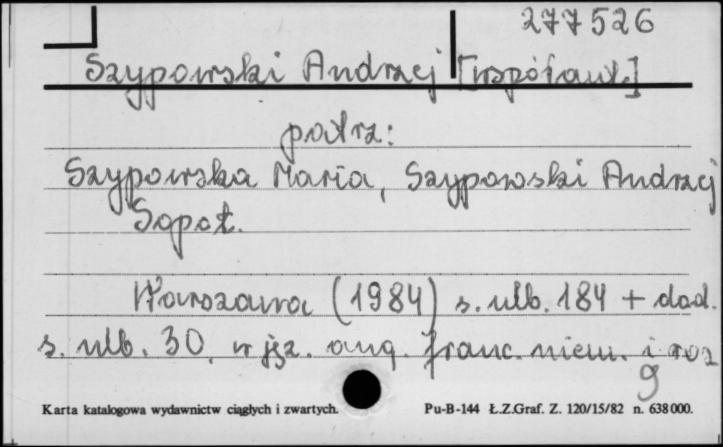 277526
Szypowski Andrzej [współaut.]
patrz:
Szypowska Maria, Szypowski Andrzej
Sopot.
Warszawa (1984) s. ulb. 184 + dod.
s. ulb. 30. w jęz. ang. franc. niem. i ros
9
Karta katalogowa wydawnictw ciągłych i zwartych. Pu-B-144 Ł.Z.Graf. Z. 120/15/82 n. 638000.